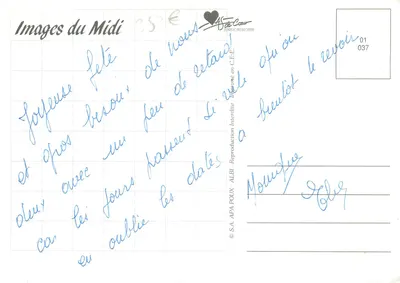 Images du Midi
01
037
Joyeuse fête
et gros bisous de nous
deux avec un peu de retard
car les jours passent si vite qu'on
en oublie les dates a bientot te revoir
Monique
© S.A. APA POUX - ALBI Reproduction interdite en C.E.E.